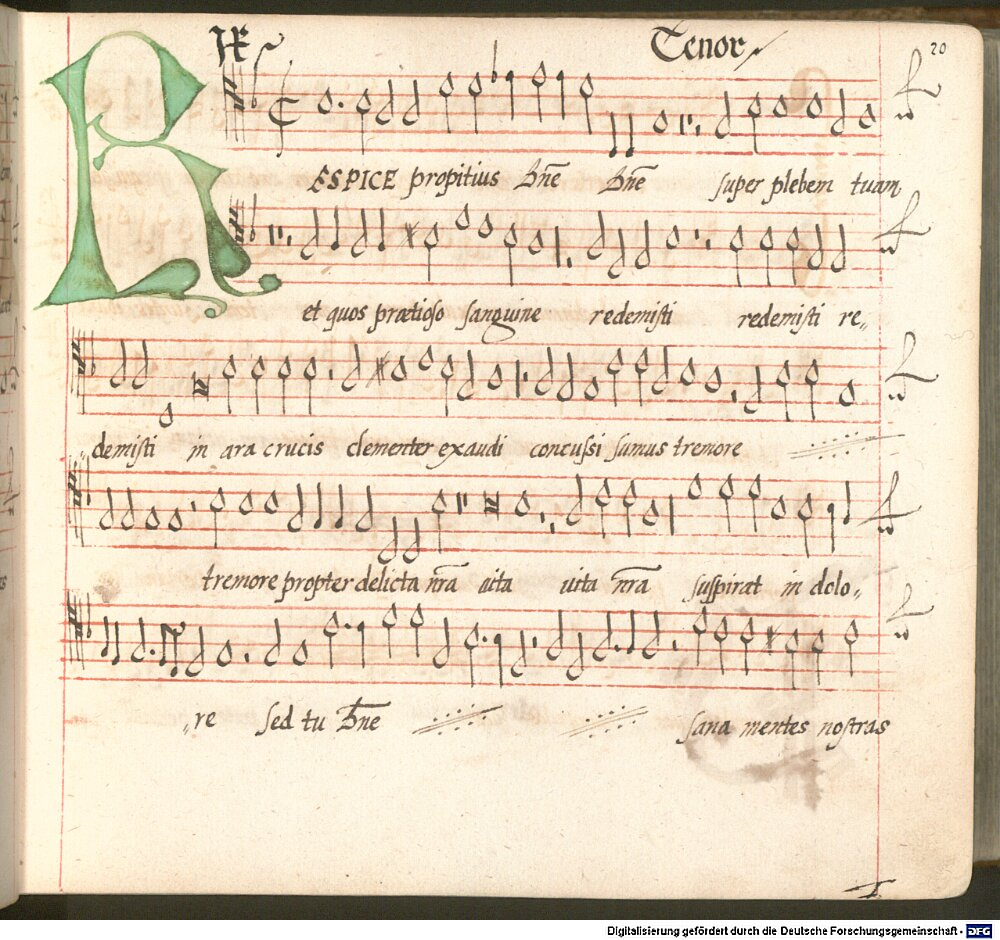 Tenor 20
RESPICE propitius Dn̄e Dn̄e super plebem tuam
et quos prætioso sanguine redemisti redemisti re„
„demisti in ara crucis clementer exaudi concussi sumus tremore
tremore propter delicta nr̄a uita uita nr̄a suspirat in dolo„
„re sed tu Dn̄e sana mentes nostras
Digitalisierung gefördert durch die Deutsche Forschungsgemeinschaft - DFG